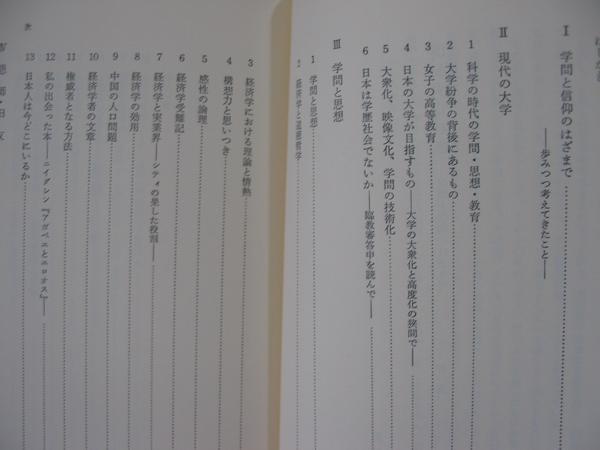 はしがき
Ⅰ 学問と信仰のはざまで
――歩みつつ考えてきたこと――
Ⅱ 現代の大学
1 科学の時代の学問・思想・教育
2 大学紛争の背後にあるもの
3 女子の高等教育
4 日本の大学が目指すもの――大学の大衆化と高度化の狭間で――
5 大衆化、映像文化、学問の技術化
6 日本は学歴社会でないか――臨教審答申を読んで――
Ⅲ 学問と思想
1 学問と思想
2 経済学と道徳哲学
3 経済学における理論と情熱
4 構想力と思いつき
5 感性の論理
6 経済学受難記
7 経済学と実業界――シティの果した役割――
8 経済学の効用
9 中国の人口問題
10 経済学者の文章
11 権威者となる方法
12 私の出会った本――ニイグレン『アガペエとエロオス』――
13 日本人は今どこにいるか
次